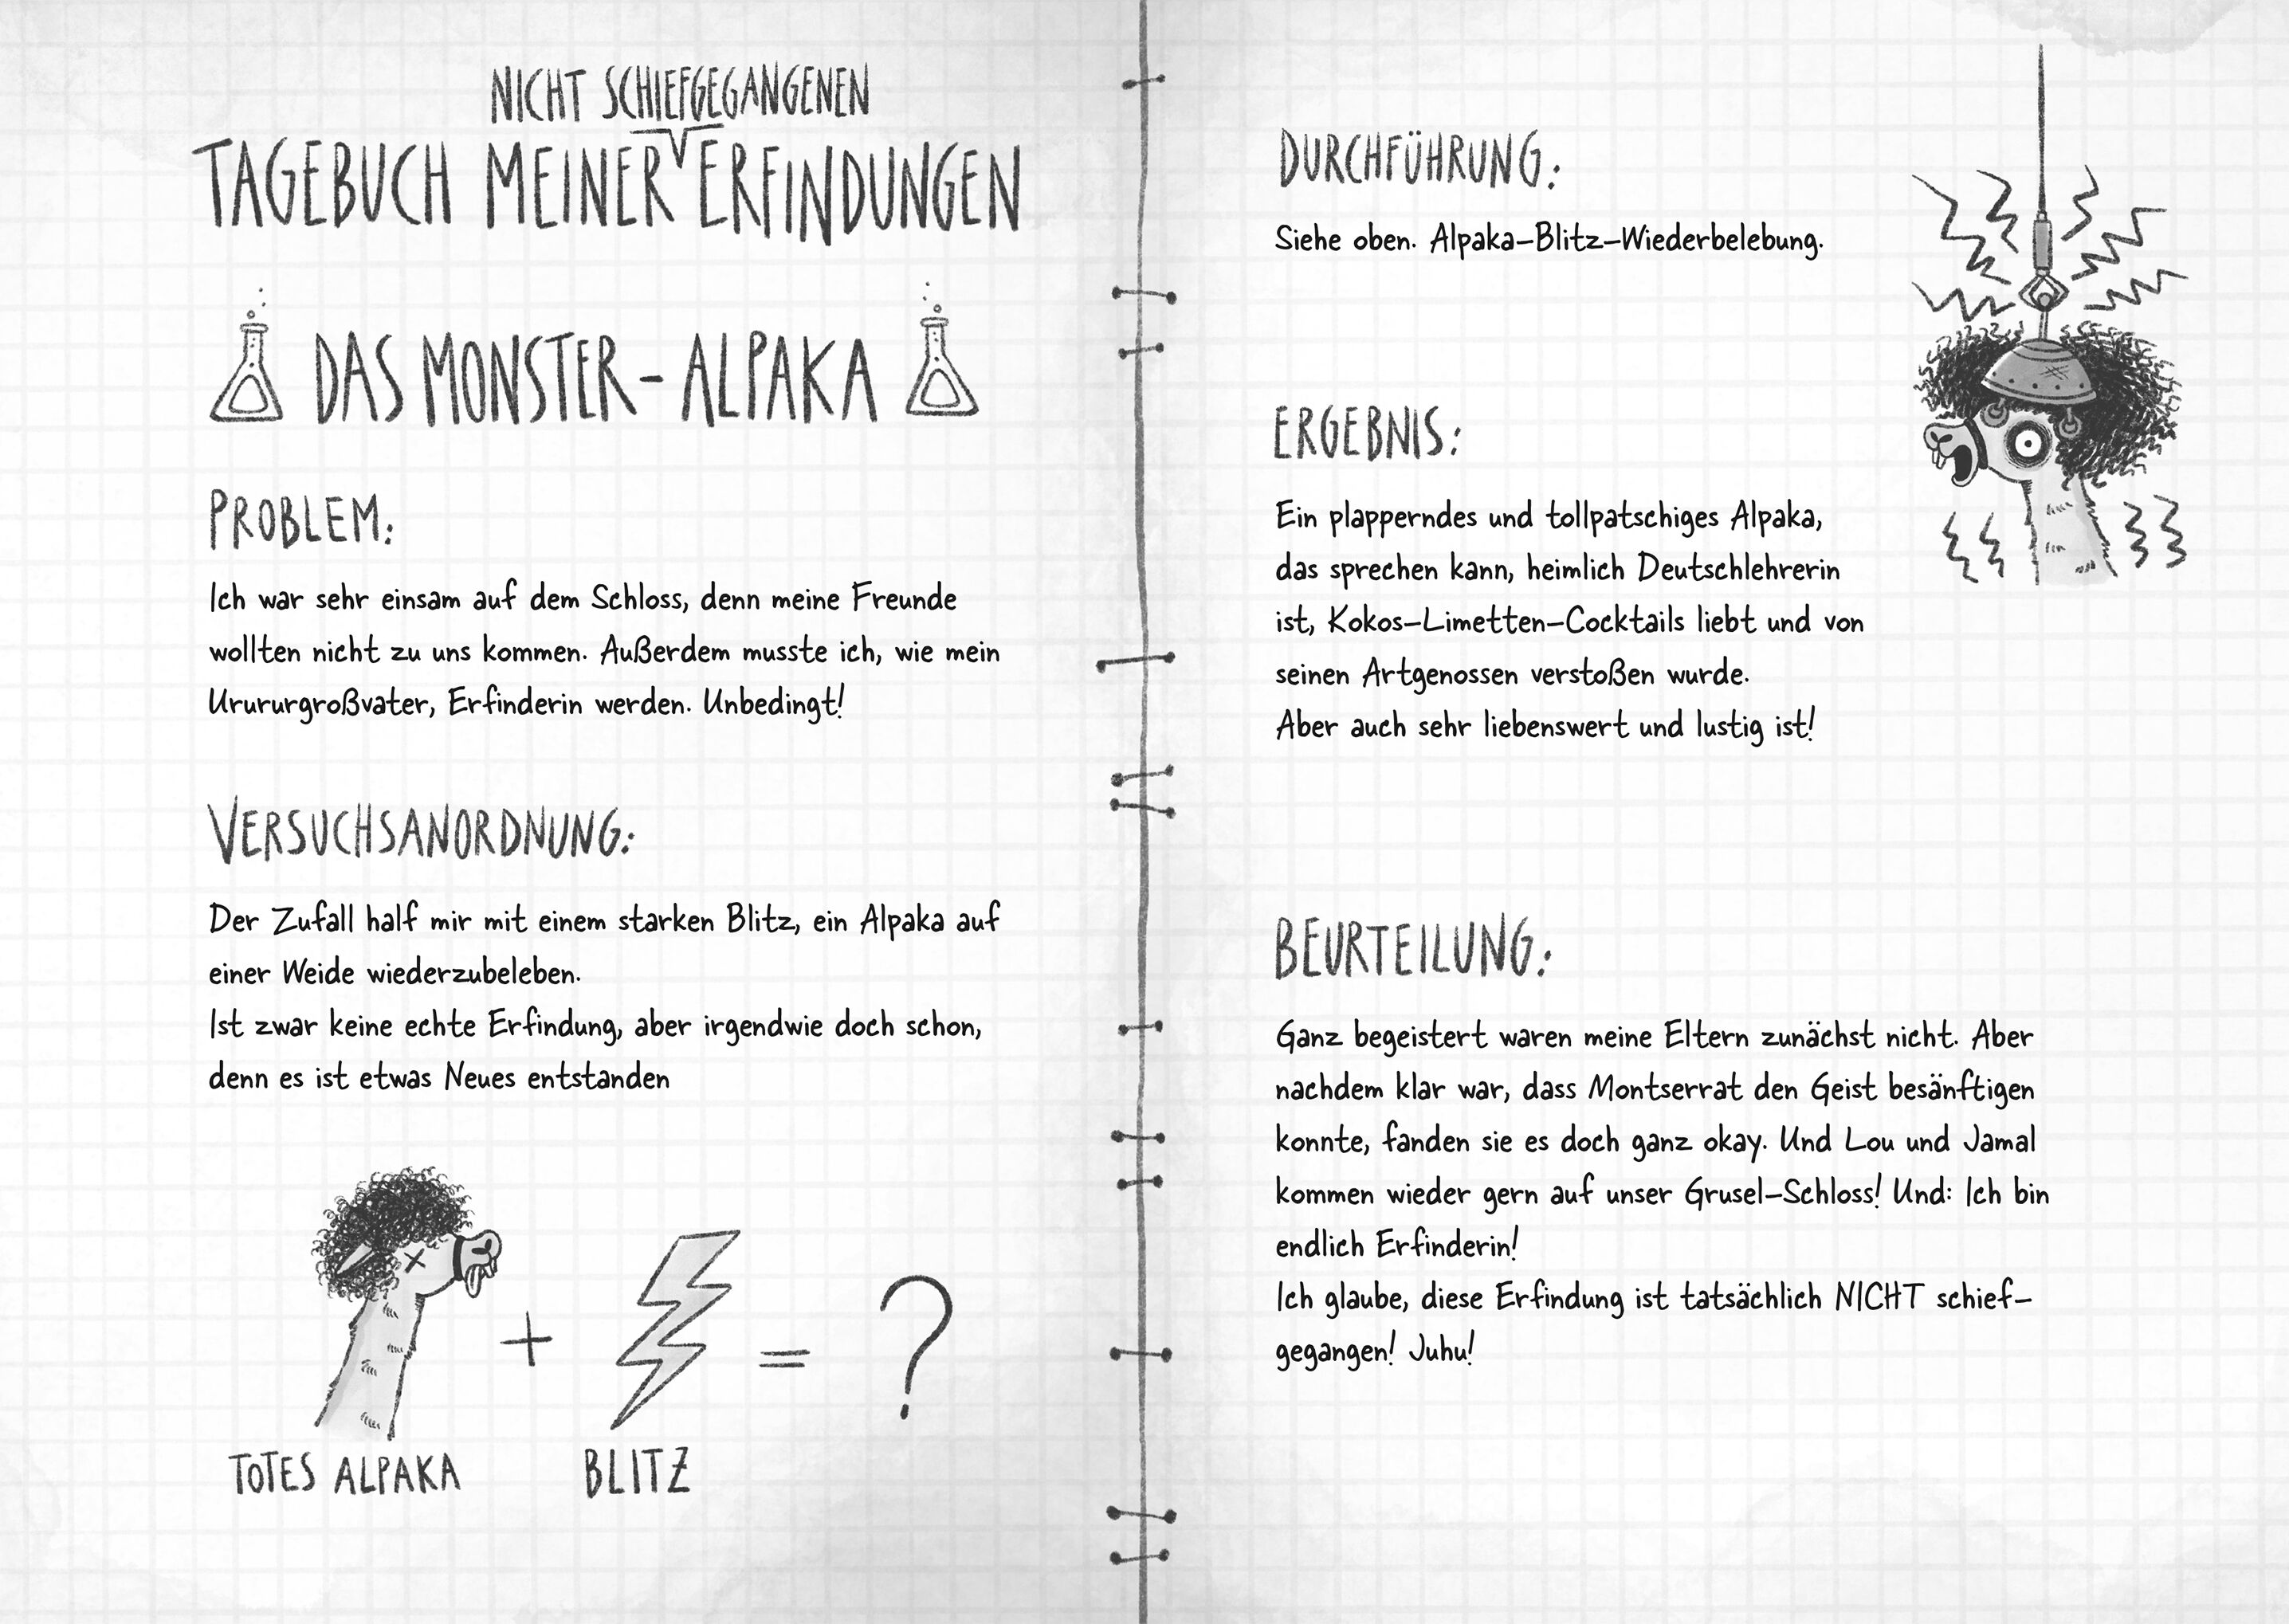 NICHT SCHIEFGEGANGENEN
TAGEBUCH MEINER ERFINDUNGEN
DAS MONSTER-ALPAKA
PROBLEM:
Ich war sehr einsam auf dem Schloss, denn meine Freunde
wollten nicht zu uns kommen. Außerdem musste ich, wie mein
Urururgroßvater, Erfinderin werden. Unbedingt!
VERSUCHSANORDNUNG:
Der Zufall half mir mit einem starken Blitz, ein Alpaka auf
einer Weide wiederzubeleben.
Ist zwar keine echte Erfindung, aber irgendwie doch schon,
denn es ist etwas Neues entstanden
+ = ?
TOTES ALPAKA BLITZ
DURCHFÜHRUNG:
Siehe oben. Alpaka-Blitz-Wiederbelebung.
ERGEBNIS:
Ein plapperndes und tollpatschiges Alpaka,
das sprechen kann, heimlich Deutschlehrerin
ist, Kokos-Limetten-Cocktails liebt und von
seinen Artgenossen verstoßen wurde.
Aber auch sehr liebenswert und lustig ist!
BEURTEILUNG:
Ganz begeistert waren meine Eltern zunächst nicht. Aber
nachdem klar war, dass Montserrat den Geist besänftigen
konnte, fanden sie es doch ganz okay. Und Lou und Jamal
kommen wieder gern auf unser Grusel-Schloss! Und: Ich bin
endlich Erfinderin!
Ich glaube, diese Erfindung ist tatsächlich NICHT schief-
gegangen! Juhu!